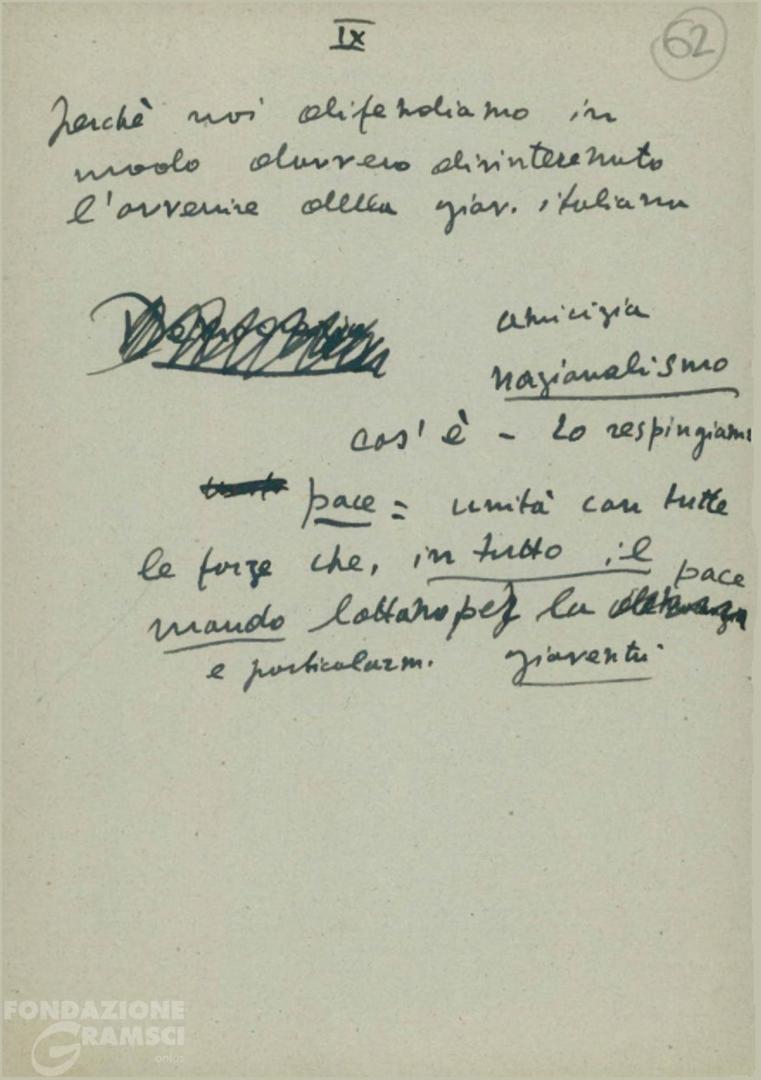 IX
62
perchè noi difendiamo in
modo davvero disinteressato
l'avvenire della giov. italiana
amicizia
nazionalismo
cos'è - Lo respingiamo
pace = unità con tutte
le forze che, in tutto il pace
mondo lottano per la
e particolarm. gioventù
FONDAZIONE
GRAMSCI
onlus